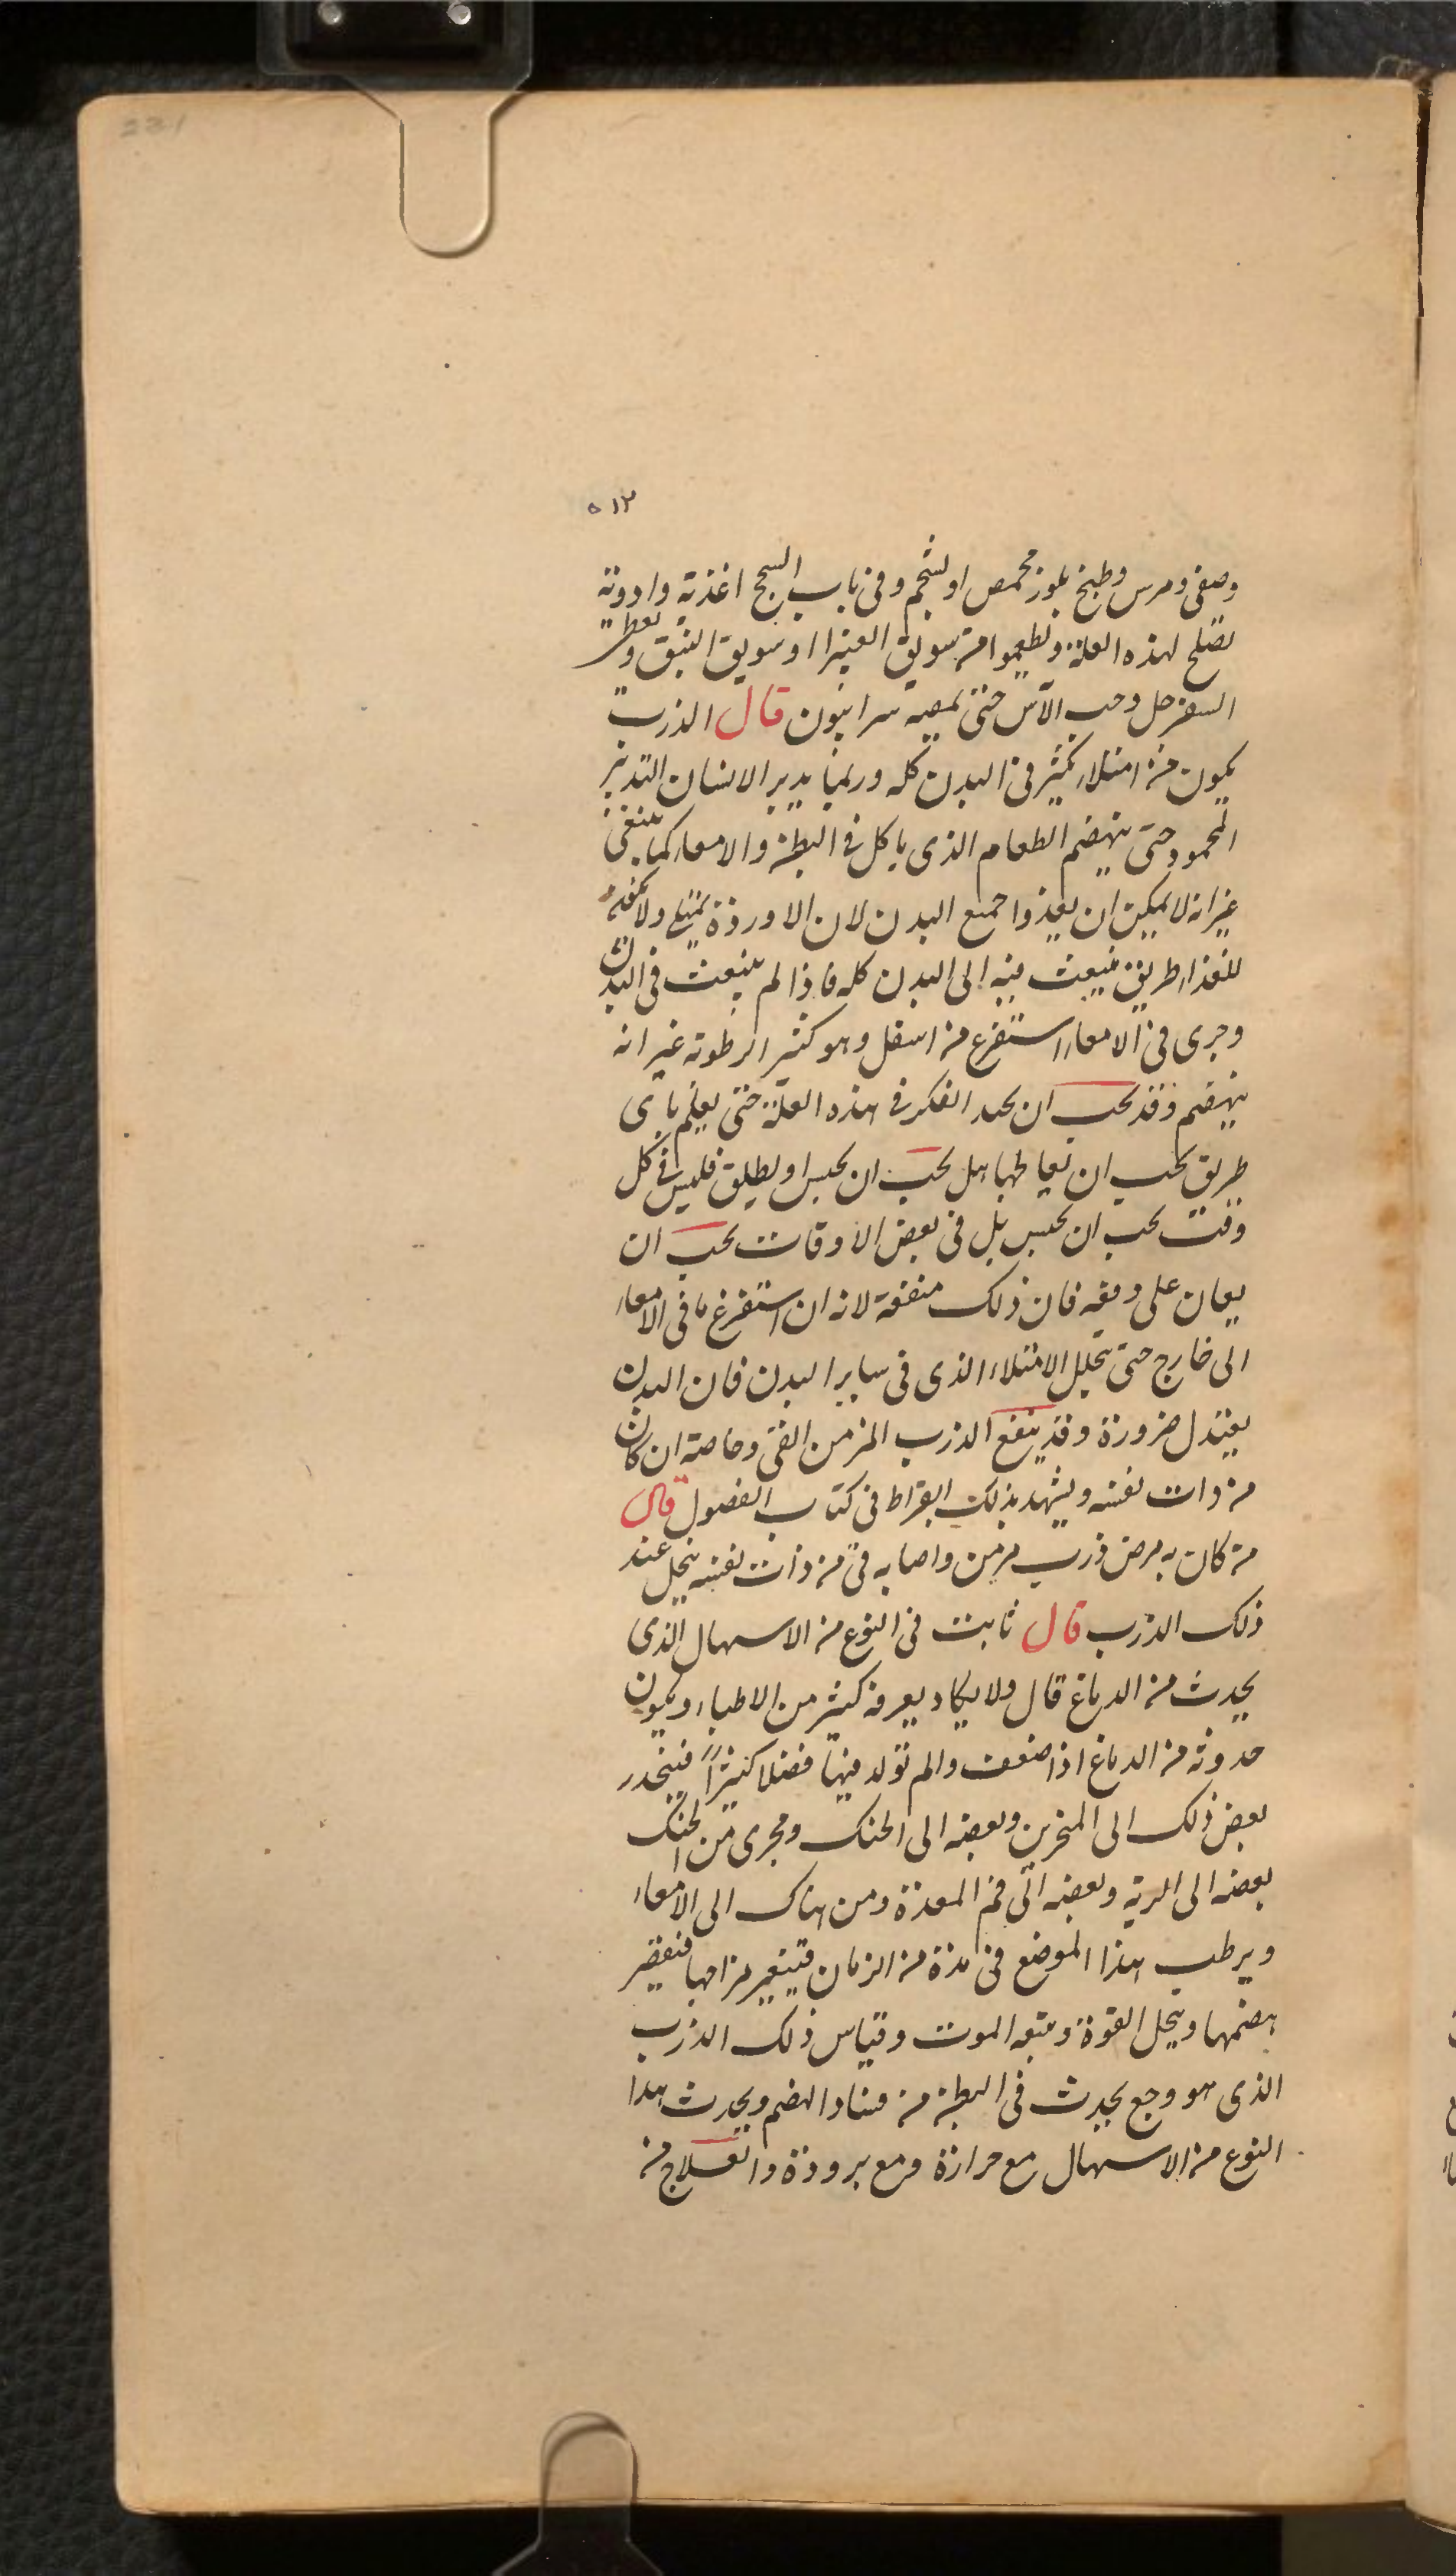 231
٥١٢
وصفى ومرس وطبخ بلوز محمص او بشحم وفى باب السحج اغذية وادوية
تصلح لهذه العلة ويطعموا من سويق الغبيرا او سويق النبق و
السفرجل وحب الآس حتى سرابيون قال الذرب
يكون من امتلاء كثير فى البدن كله وربما يدبر الانسان التدبير
المحمود حتى ينهضم الطعام الذى ياكل فى البطن والامعاء كما ينبغى
غير انه لا يمكن ان يغذوا جميع البدن لان الاوردة ولا
للغذاء طريق ينبعث منه الى البدن كله فاذا لم ينبعث فى البدن
وجرى فى الامعاء استفرغ من اسفل وهو كثير الرطوبة غير انه
ينهضم وقد يجب ان يجيد الفكر فى هذه العلة حتى يعلم باى
طريق يجب ان يعالجها هل يجب ان يحبس او يطلق فليس فى كل
وقت يجب ان يحبس بل فى بعض الاوقات يجب ان
يعان على دفعه فان ذلك منفعة لانه ان استفرغ ما فى الامعاء
الى خارج حتى يتحلل الامتلاء الذى فى ساير البدن فان البدن
يعتدل ضرورة وقد ينفع الذرب المزمن القى وخاصة ان كان
من ذات نفسه ويشهد بذلك ابقراط فى كتاب الفصول قال
من كان به مرض ذرب مزمن واصابه قى من ذات نفسه ينحل عند
ذلك الذرب قال ثابت فى النوع من الاسهال الذى
يحدث من الدماغ قال ولا يكاد يعرفه كثير من الاطباء ويكون
حدوثه من الدماغ اذا ضعفت والم تولد فيها فضلا كثيراً فينحدر
بعض ذلك الى المنخرين وبعضه الى الحنك ومجرى من الحنك
بعضه الى الرية وبعضه الى فم المعدة ومن هناك الى الامعاء
ويرطب هذا الموضع فى مدة من الزمان فيتغير مزاجها فتقصر
هضمها وينحل القوة ويتبعه الموت وقياس ذلك الذرب
الذى هو وجع يحدث فى البطن من فساد الهضم ويحدث هذا
النوع من الاسهال مع حرارة ومع برودة والعلاج من